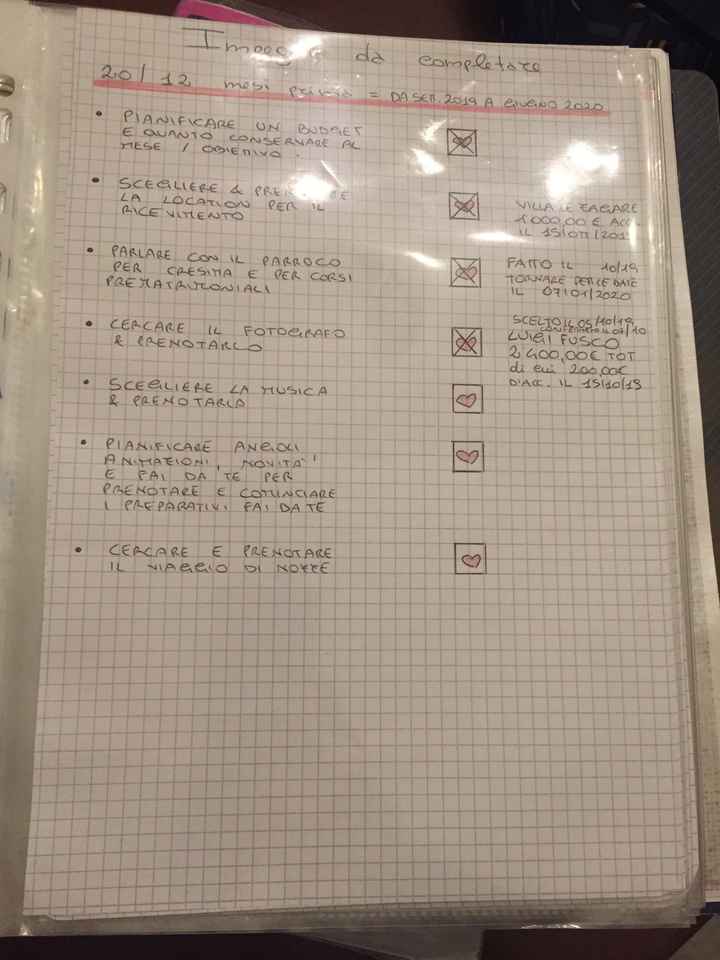 da completare
20/12 mesi prima = DA SETT. 2019 A GIUGNO 2020
• PIANIFICARE UN BUDGET
E QUANTO CONSERVARE AL
MESE / OBIETTIVO.
• SCEGLIERE &
LA LOCATION PER IL
RICEVIMENTO
VILLA LE ZAGARE
1000,00 € ACC.
IL 15/07/201
• PARLARE CON IL PARROCO
PER CRESIMA E PER CORSI
PREMATRIMONIALI
FATTO IL 10/19
TORNARE PER LE DATE
IL 07/01/2020
• CERCARE IL FOTOGRAFO
& PRENOTARLO
SCELTO IL 05/10/19
CONFERMATO IL 07/10
LUIGI FUSCO
2'400,00€ TOT
di cui 200,00€
D'ACC. IL 15/10/19
• SCEGLIERE LA MUSICA
& PRENOTARLA
• PIANIFICARE ANGOLI
ANIMAZIONI, NOVITA'
E FAI DA TE PER
PRENOTARE E COMINCIARE
I PREPARATIVI FAI DA TE
• CERCARE E PRENOTARE
IL VIAGGIO DI NOZZE